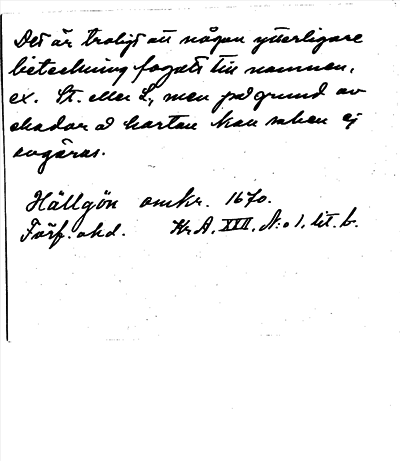 Det är troligt att någon ytterligare
beteckning fogats till namnen,
ex. St. eller L., men på grund av
skador å kartan kan saken ej
avgöras.
Hällgön omkr. 1670.
Förf. okd. Kr. A. XIII. N:o 1. lit. b.